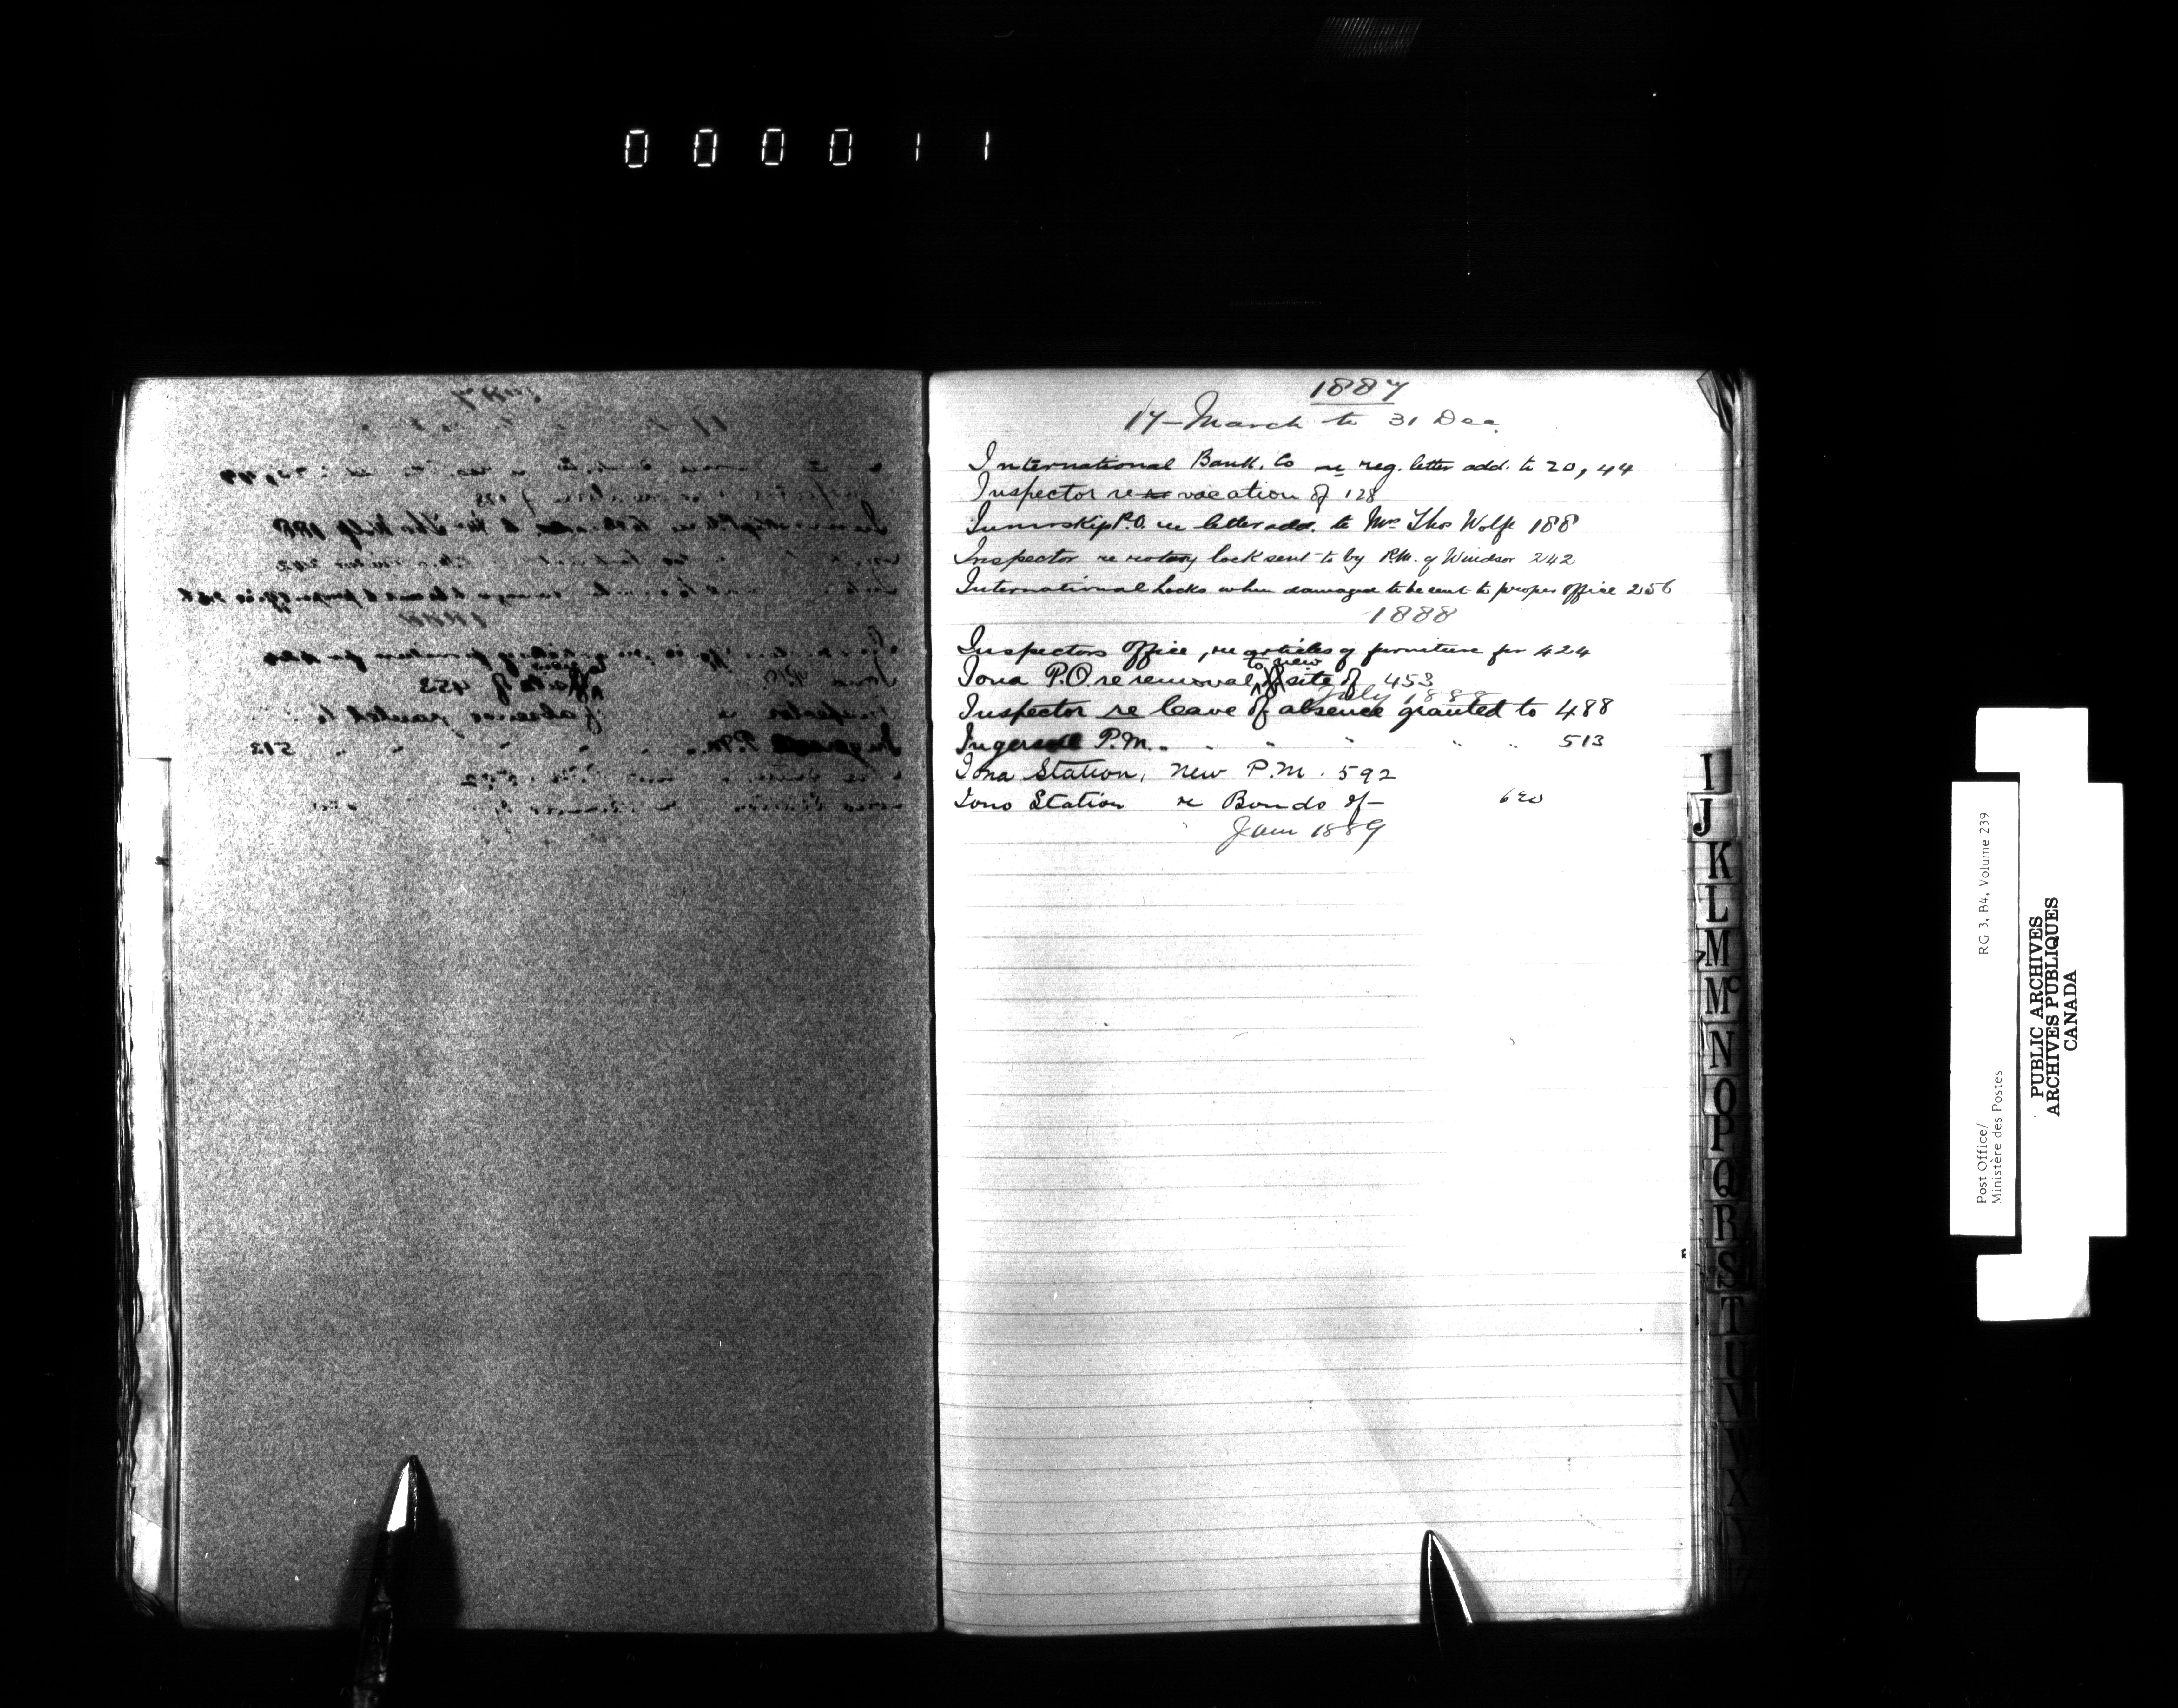 000011
1887
17 - March to 31 Dec.
International Bank. Co re reg. letter add. to 20, 44
Inspector re vacation of 128
Innerskip P.O. re letter add. to Mrs Thos Wolfe 188
Inspector re rotary lock sent to by P.M. of Windsor 242
International Locks when damaged to be sent to proper office 256
1888
Inspectors Office, re articles of furniture for 424
to new
Iona P.O. re removal site of 453
July 1888
Inspector re leave of absence granted to 488
Ingersoll P.M. " " " " " 513
Iona Station, New P.M. 592
Iona Station re Bonds of - 620
Jan 1889
I
J
K
L
M
Mc
N
O
P
Q
R
S
T
U
V
W
X
Y
Post Office/ RG 3, B4, Volume 239
Ministère des Postes
PUBLIC ARCHIVES
ARCHIVES PUBLIQUES
CANADA